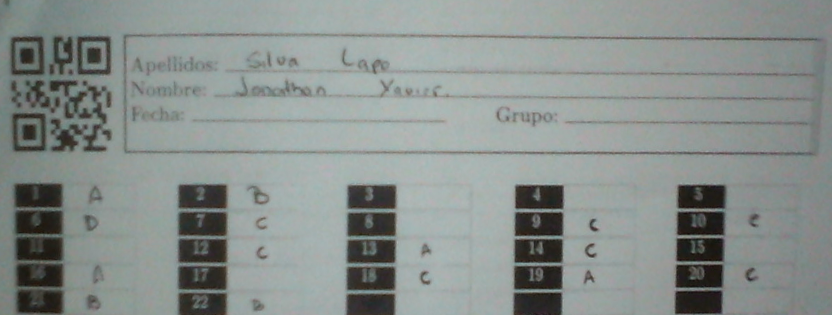 Apellidos: Silva Lapo
Nombre: Jonathan Xavier.
Fecha: Grupo:
1 A 2 B 3 4 5
6 D 7 C 8 9 C 10 C
11 12 C 13 A 14 C 15
16 A 17 18 C 19 A 20 C
21 B 22 B